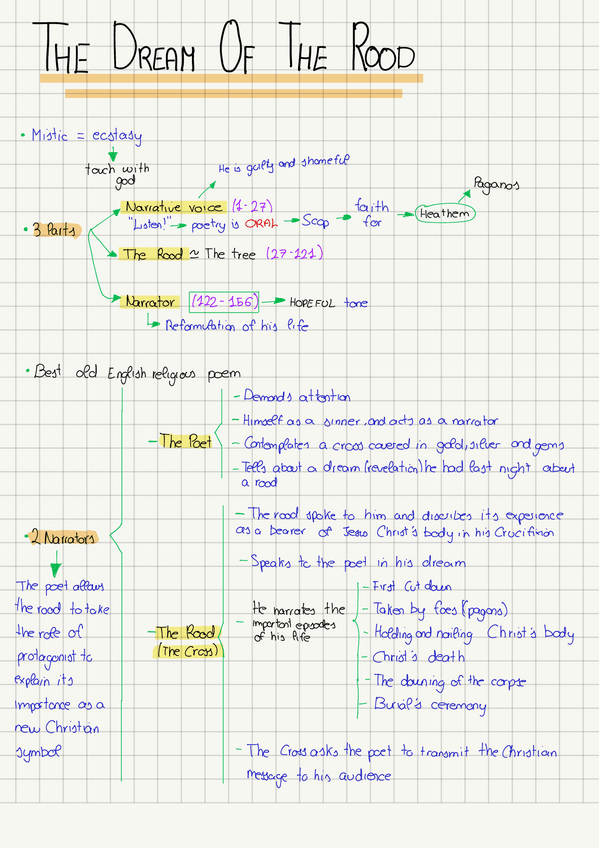 THE DREAM OF THE ROOD
• Mistic = ecstasy
touch with
god
He is guilty and shameful
• 3 Parts
Narrative voice (1-27)
"Listen!" → poetry is ORAL → Scop → faith for → Heathem
Paganos
The Rood ≃ The tree (27-121)
Narrator (122-156) → HOPEFUL tone
Reformulation of his life
• Best old English religious poem
• 2 Narrators
The poet allows
the rood to take
the role of
protagonist to
explain its
importance as a
new Christian
symbol
- The Poet
- Demands attention
- Himself as a sinner and acts as a narrator
- Contemplates a cross covered in gold, silver and gems
- Tells about a dream (revelation) he had last night about
a rood
- The Rood
(The Cross)
- The rood spoke to him and discribes its experience
as a bearer of Jesus Christ's body in his Crucifixion
- Speaks to the poet in his dream
- He narrates the
important episodes
of his life
- First Cut down
- Taken by foes (pagans)
- Holding and nailing Christ's body
- Christ's death
- The douning of the corpse
- Burial's ceremony
- The Cross asks the poet to transmit the Christian
message to his audience